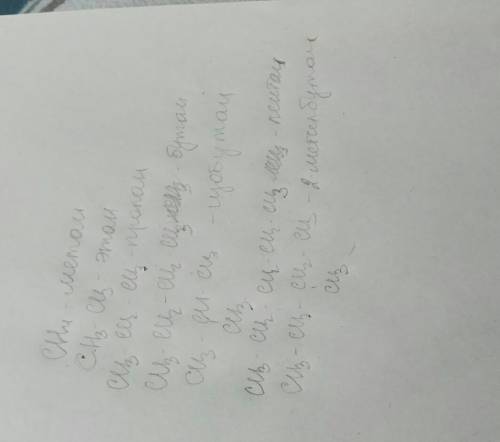 CH4 - метан
CH3 - CH3 - этан
CH3 - CH2 - CH3 - пропан
CH3 - CH2 - CH2 - CH3 - бутан
CH3 - CH - CH3 - изобутан
CH3
CH3 - CH2 - CH2 - CH2 - CH3 - пентан
CH3 - CH - CH2 - CH3 - 2-метилбутан
CH3